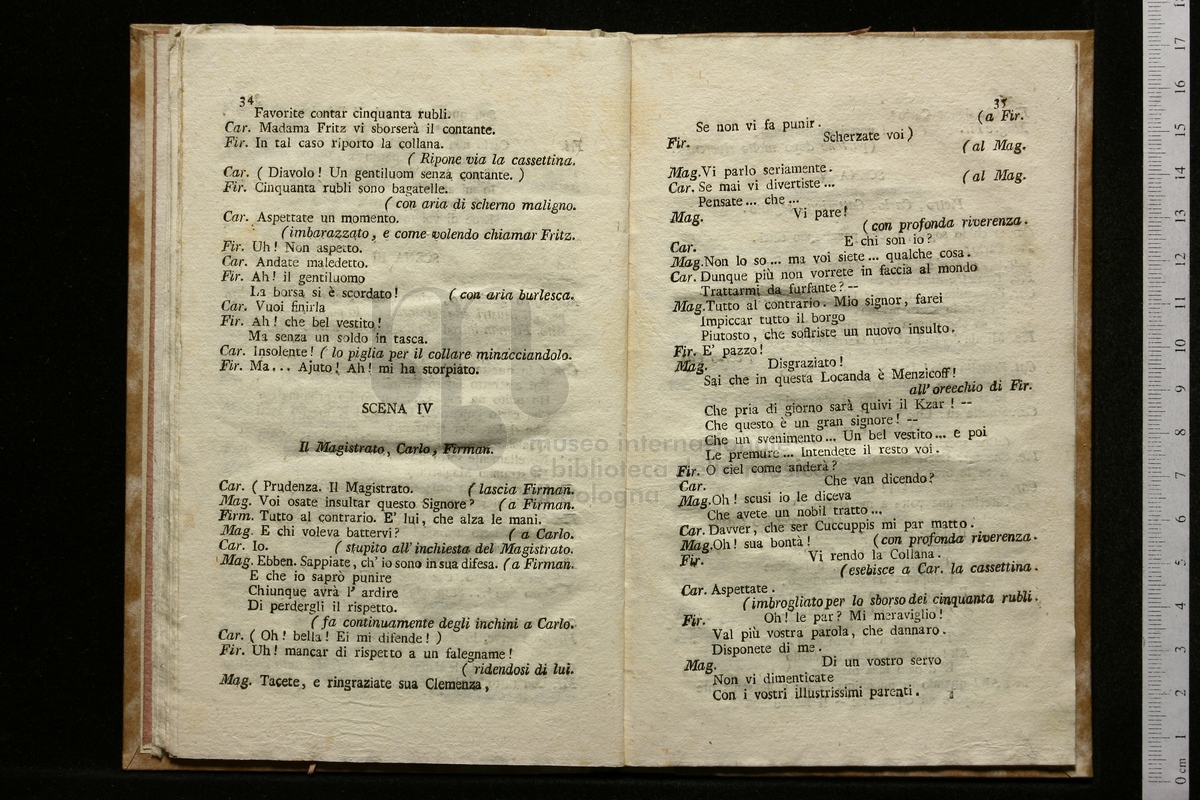 34
Favorite contar cinquanta rubli.
Car. Madama Fritz vi sborserà il contante.
Fir. In tal caso riporto la collana.
( Ripone via la cassettina.
Car. ( Diavolo! Un gentiluom senza contante. )
Fir. Cinquanta rubli sono bagatelle.
( con aria di scherno maligno.
Car. Aspettate un momento.
(imbarazzato, e come volendo chiamar Fritz.
Fir. Uh! Non aspetto.
Car. Andate maledetto.
Fir. Ah! il gentiluomo
La borsa si è scordato! ( con aria burlesca.
Car. Vuoi finirla
Fir. Ah! che bel vestito!
Ma senza un soldo in tasca.
Car. Insolente! ( lo piglia per il collare minacciandolo.
Fir. Ma... Ajuto! Ah! mi ha storpiato.
SCENA IV
Il Magistrato, Carlo, Firman.
Car. ( Prudenza. Il Magistrato. ( lascia Firman.
Mag. Voi osate insultar questo Signore? ( a Firman.
Firm. Tutto al contrario. E' lui, che alza le mani.
Mag. E chi voleva battervi? ( a Carlo.
Car. Io. ( stupito all' inchiesta del Magistrato.
Mag. Ebben. Sappiate, ch' io sono in sua difesa. ( a Firman.
E che io saprò punire
Chiunque avrà l' ardire
Di perdergli il rispetto.
( fa continuamente degli inchini a Carlo.
Car. ( Oh! bella! Ei mi difende! )
Fir. Uh! mancar di rispetto a un falegname!
( ridendosi di lui.
Mag. Tacete, e ringraziate sua Clemenza,
35
Se non vi fa punir. (a Fir.
Fir. Scherzate voi) ( al Mag.
Mag. Vi parlo seriamente.
Car. Se mai vi divertiste... ( al Mag.
Pensate... che...
Mag. Vi pare!
(con profonda riverenza.
Car. E chi son io?
Mag. Non lo so... ma voi siete... qualche cosa.
Car. Dunque più non vorrete in faccia al mondo
Trattarmi da furfante? --
Mag. Tutto al contrario. Mio signor, farei
Impiccar tutto il borgo
Piutosto, che soffriste un nuovo insulto.
Fir. E' pazzo!
Mag. Disgraziato!
Sai che in questa Locanda è Menzicoff!
all' oreechio di Fir.
Che pria di giorno sarà quivi il Kzar! --
Che questo è un gran signore! --
Che un svenimento... Un bel vestito... e poi
Le premure... Intendete il resto voi.
Fir. O ciel come anderà?
Car. Che van dicendo?
Mag. Oh! scusi io le diceva
Che avete un nobil tratto...
Car. Davver, che ser Cuccuppis mi par matto.
Mag. Oh! sua bontà! (con profonda riverenza.
Fir. Vi rendo la Collana.
(esebisce a Car. la cassettina.
Car. Aspettate.
(imbrogliato per lo sborso dei cinquanta rubli.
Fir. Oh! le par? Mi meraviglio!
Val più vostra parola, che dannaro.
Disponete di me.
Mag. Di un vostro servo
Non vi dimenticate
Con i vostri illustrissimi parenti.
museo internazionale
e biblioteca
bologna
0 cm 1 2 3 4 5 6 7 8 9 10 11 12 13 14 15 16 17